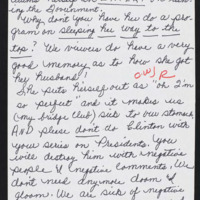 ing the Government.
Why don't you have her do a pro-
gram on sleeping her way to the
top? We viewers do have a very
good memory as to how she got
her husband!
OWJR
She puts herself out as "oh I'm
so perfect" and it makes us
(my bridge club) sick to our stomach.
AND please don't do Clinton with
your series on Presidents. You
will destroy him with negative
people & negative comments. We
don't need anymore doom &
gloom. We are sick of negative